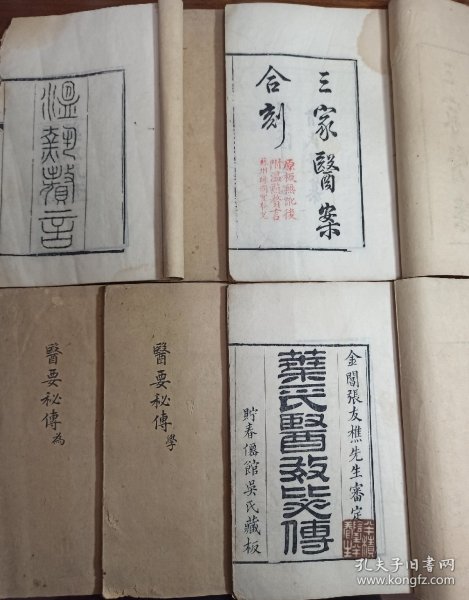 溫熱贅言
三家醫案
合刻
原板無訛後
附溫熱贅言
醫要秘傳
為
醫要秘傳
學
金閶張友樵先生審定
葉氏醫效秘傳
貯春僊館吳氏藏板
孔夫子旧书网
www.kongfz.com